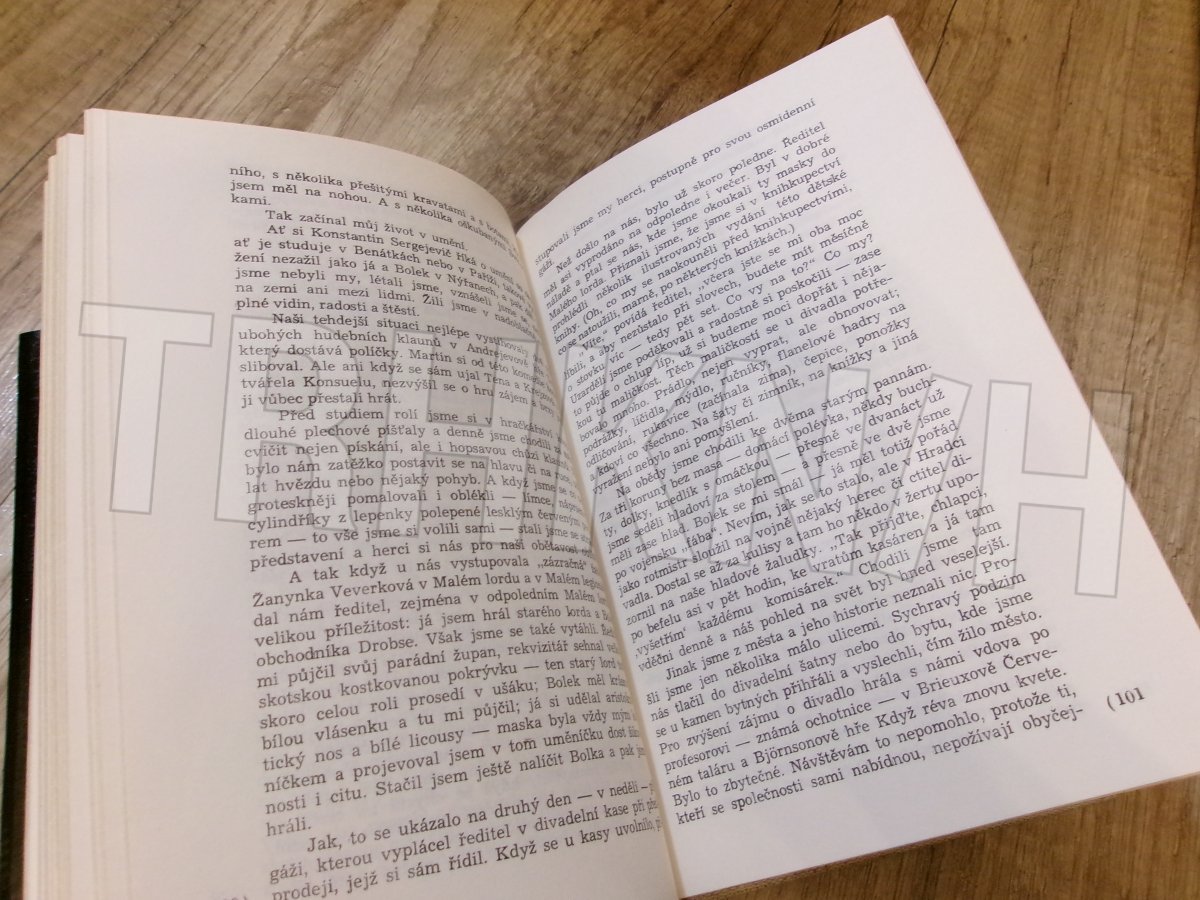 ního, s několika přešitými kravatami a s botami,
jsem měl na nohou. A s několika oškubanými
kami.
Tak začínal můj život v umění.
Ať si Konstantin Sergejevič říká o umění
ať je studuje v Benátkách nebo v Paříži, takové
žení nezažil jako já a Bolek v Nýřanech, a pak
jsme nebyli my, létali jsme, vznášeli jsme se
na zemi ani mezi lidmi. Žili jsme v
plné vidin, radosti a štěstí.
Naši tehdejší situaci nejlépe vystihovaly
ubohých hudebních klaunů v Andrejevově
který dostává políčky. Martin si od této komedie
sliboval. Ale ani když se sám ujal Téna a
tvářela Konsuelu, nezvýšil se o hru zájem a
ji vůbec přestali hrát.
Před studiem rolí jsme si v hračkářství
dlouhé plechové píšťaly a denně jsme chodili
cvičit nejen pískání, ale i hopsavou chůzi
bylo nám zatěžko postavit se na hlavu či na ruce,
lat hvězdu nebo nějaký pohyb. A když jsme se
groteskněji pomalovali i oblékli — límce,
cylindříky z lepenky polepené lesklým červeným
rem — to vše jsme si volili sami — stali jsme se
představení a herci si nás pro naši obětavost
A tak když u nás vystupovala „zázračná“
Žanynka Veverková v Malém lordu a v Malém
dal nám ředitel, zejména v odpoledním Malém
velikou příležitost: já jsem hrál starého lorda a
obchodníka Drobse. Však jsme se také vytáhli.
mi půjčil svůj parádní župan, rekvizitář sehnal
skotskou kostkovanou pokrývku — ten starý lord
skoro celou roli prosedí v ušáku; Bolek měl
bílou vlásenku a tu mi půjčil; já si udělal
tický nos a bílé licousy — maska byla vždy mým
níčkem a projevoval jsem v tom uměníčku dost
nosti i citu. Stačil jsem ještě nalíčit Bolka a pak
hráli.
Jak, to se ukázalo na druhý den — v neděli —
gáži, kterou vyplácel ředitel v divadelní kase při
prodeji, jejž si sám řídil. Když se u kasy uvolnilo,
stupovali jsme my herci, postupně pro svou osmidenní
gáži.
Než došlo na nás, bylo už skoro poledne. Ředitel
měl asi vyprodáno na odpoledne i večer. Byl v dobré
náladě a ptal se nás, kde jsme okoukali ty masky do
Malého lorda. Přiznali jsme, že jsme si v knihkupectví
prohlédli několik ilustrovaných vydání této dětské
knihy. (Oh, co my se naokouněli před knihkupectvími,
co se natoužili, marně, po některých knížkách.)
„Víte,“ povídá ředitel, „včera jste se mi oba moc
líbili, a aby nezůstalo při slovech, budete mít měsíčně
o stovku víc — tedy pět set. Co vy na to?“ Co my?
Uzarděli jsme, poděkovali a radostně si poskočili — zase
to půjde o chlup líp, už si budeme moci dopřát i něja-
kou tu maličkost. Těch maličkostí se u divadla potře-
bovalo mnoho. Prádlo, nejen vyprat, ale obnovovat;
podrážky, líčidla, mýdlo, ručníky, flanelové hadry na
odličování, rukavice (začínala zima), čepice, ponožky
a kdoví co všechno. Na šaty či zimník, na knížky a jiná
vyražení nebylo ani pomyšlení.
Na obědy jsme chodili ke dvěma starým pannám.
Za tři koruny bez masa — domácí polévka, někdy buch-
ty, dolky, knedlík s omáčkou — přesně ve dvanáct už
jsme seděli hladoví za stolem — a přesně ve dvě jsme
měli zase hlad. Bolek se mi smál — já měl totiž pořád
po vojensku „fába“. Nevím, jak se to stalo, ale v Hradci
jako rotmistr sloužil na vojně nějaký herec či ctitel di-
vadla. Dostal se až za kulisy a tam ho někdo v žertu upo-
zornil na naše hladové žaludky. „Tak přijďte, chlapci,
po befelu asi v pět hodin, ke vratům kasáren a já tam
‚vyšetřím‘ každému komisárek.“ Chodili jsme tam
vděčni denně a náš pohled na svět byl hned veselejší.
Jinak jsme z města a jeho historie neznali nic. Pro-
šli jsme jen několika málo ulicemi. Sychravý podzim
nás tlačil do divadelní šatny nebo do bytu, kde jsme
se u kamen bytných přihřáli a vyslechli, čím žilo město.
Pro zvýšení zájmu o divadlo hrála s námi vdova po
profesorovi — známá ochotnice — v Brieuxově Červe-
ném taláru a Björnsonově hře Když réva znovu kvete.
Bylo to zbytečné. Návštěvám to nepomohlo, protože ti,
kteří se společnosti sami nabídnou, nepožívají obyčej-
(101